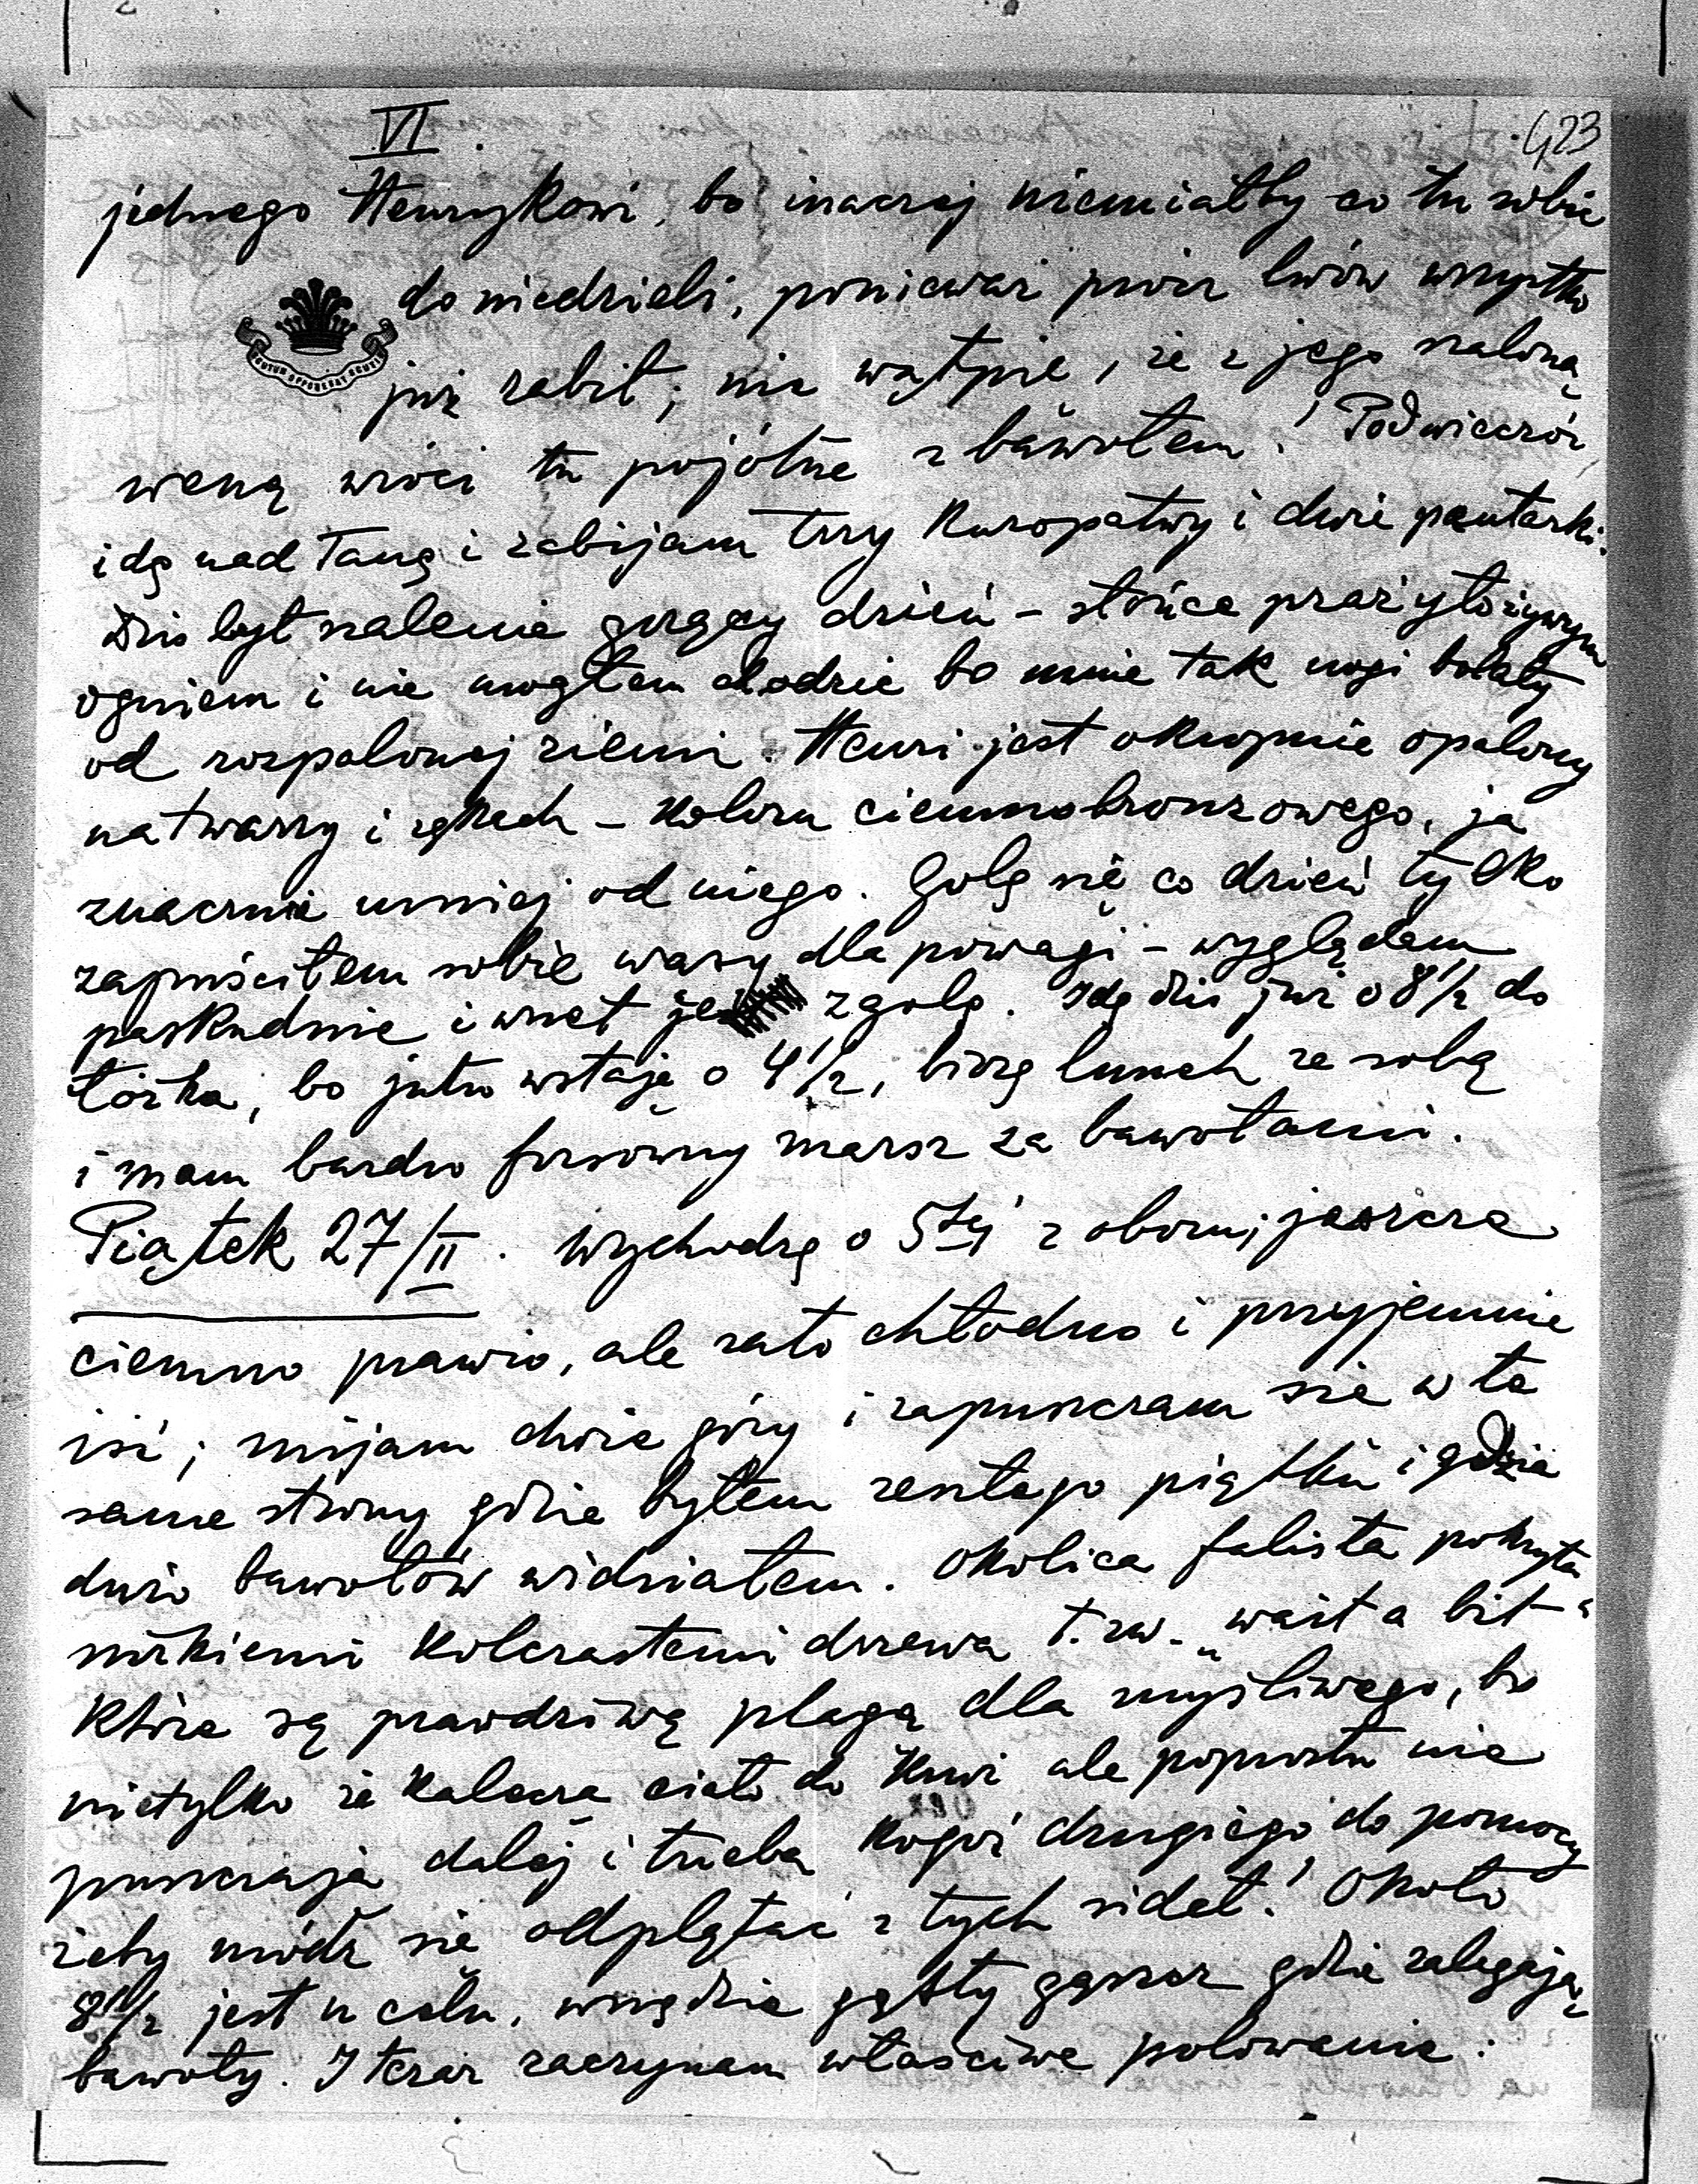 VI.
423
jednego Henrykowi, bo inaczej niemiałby co tu robić
do niedzieli, ponieważ prócz lwów wszystko
już zabił; nie wątpię, że z jego szaloną
weną wróci tu pojótrze z bawołem! Podwieczór
idę nad Taną i zabijam trzy kuropatwy i dwie pantarki.
Dziś był szalenie gorący dzień – słońce prażyło żywym
ogniem i nie mogłem chodzić bo mnie tak nogi bolały
od rozpalonej ziemi. Henri jest okropnie opalony
na twarzy i rękach – koloru ciemnobronzowego, ja
znacznie mniej od niego. Golę się co dzień tylko
zapuściłem sobie wąsy dla powagi – wyglądam
paskudnie i wnet je zgolę. Idę dziś już o 8 1/2 do
łóżka, bo jutro wstaję o 4 1/2, biorę lunch ze sobą
i mam bardzo forsowny marsz za bawołami.
Piątek 27/II. Wychodzę o 5tej z obozu; jeszcze
ciemno prawie, ale zato chłodno i przyjemnie
iść; mijam dwie góry i zapuszczam się w te
same strony gdzie byłem zeszłego piątku i gdzie
dwie bawołów widziałem. Okolica falista pokryta
niskiemi kolczastemi drzewa t. zw. „wait a bit“
które są prawdziwą plagą dla myśliwego, bo
nietylko że kaleczą ciało do krwi ale poprostu nie
puszczają dalej i trzeba kogoś drugiego do pomocy
żeby módz się odplątać z tych sideł! Około
8 1/2 jest u celu, wszędzie gęsty gąszcz gdzie zalegają
bawoły. I teraz zaczynam właściwe polowanie: